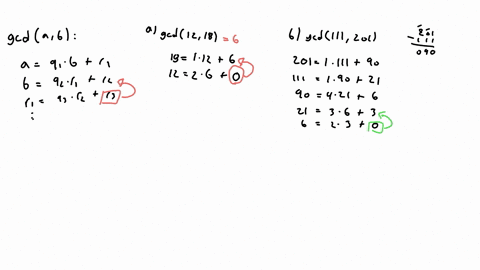 gcd(a,b):
a = q₁·b + r₁
b = q₂·r₁ + r₂
r₁ = q₃·r₂ + r₃
⋮
a) gcd(12,18) = 6
18 = 1·12 + 6
12 = 2·6 + 0
b) gcd(111, 201)
201 = 1·111 + 90
111 = 1·90 + 21
90 = 4·21 + 6
21 = 3·6 + 3
6 = 2·3 + 0
201
-111
090